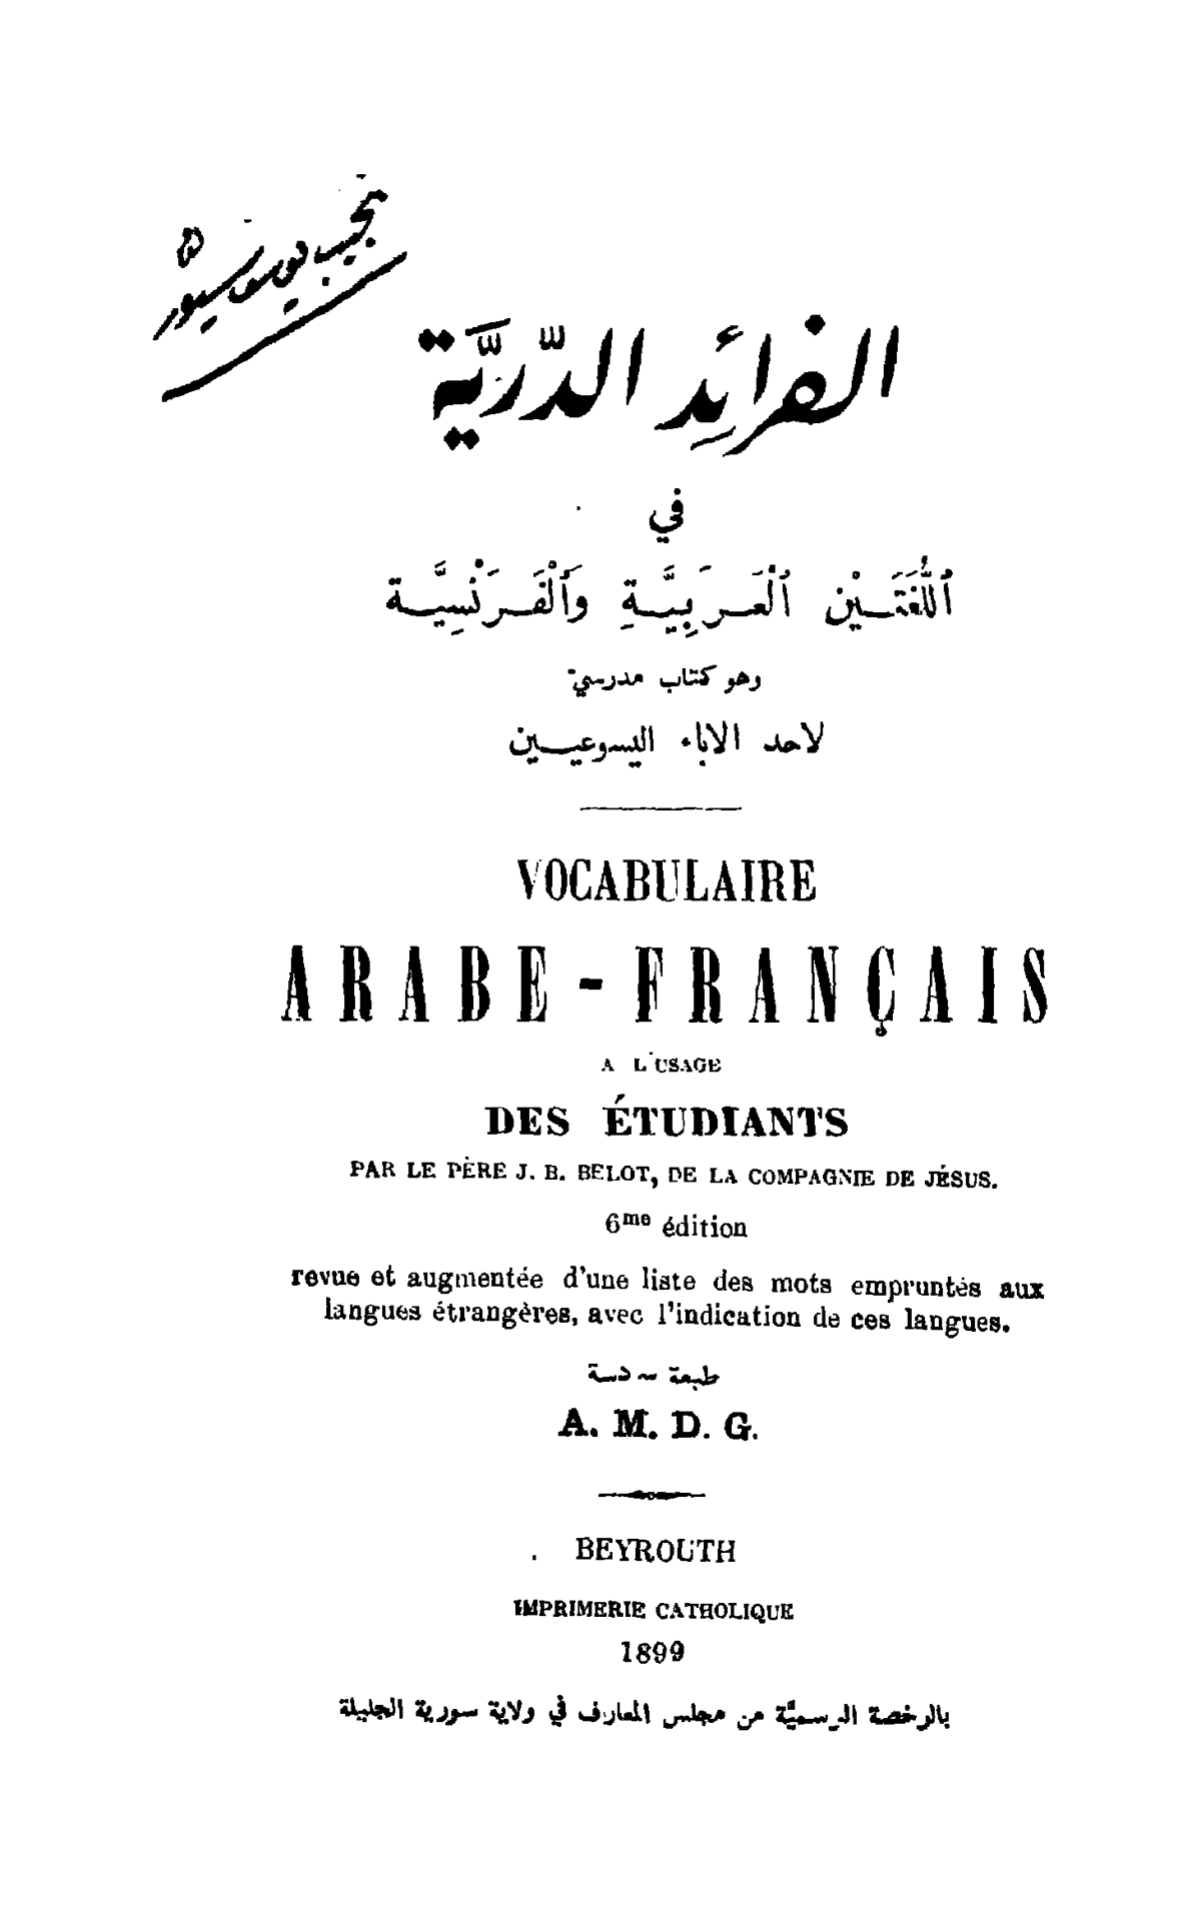 نجيب
الفرائد الدّريّة
في
ٱللُّغَتَيْن ٱلْعَرَبِيَّةِ وَٱلْفَرَنْسِيَّة
وهو كتاب مدرسي
لاحد الاباء اليسوعيين
VOCABULAIRE
ARABE-FRANÇAIS
A L'USAGE
DES ÉTUDIANTS
PAR LE PÈRE J. B. BELOT, DE LA COMPAGNIE DE JÉSUS.
6me édition
revue et augmentée d'une liste des mots empruntés aux
langues étrangères, avec l'indication de ces langues.
طبعة سادسة
A. M. D. G.
BEYROUTH
IMPRIMERIE CATHOLIQUE
1899
بالرخصة الرسميَّة من مجلس المعارف في ولاية سورية الجليلة